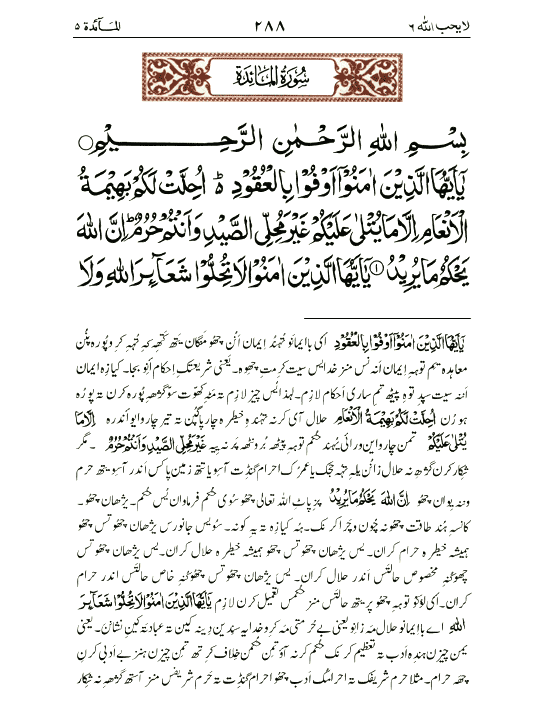 لایحب اللہ ۶ ۲۸۸ المآئدة ۵
سُورَةُ الْمَائدَة
بِسْمِ اللهِ الرَّحْمٰنِ الرَّحِيْمِ ○
يٰٓاَيُّهَا الَّذِيْنَ اٰمَنُوْٓا اَوْفُوْا بِالْعُقُوْدِ ؕ اُحِلَّتْ لَكُمْ بَهِيْمَةُ
الْاَنْعَامِ اِلَّا مَا يُتْلٰى عَلَيْكُمْ غَيْرَ مُحِلِّى الصَّيْدِ وَاَنْتُمْ حُرُمٌ ؕ اِنَّ اللهَ
يَحْكُمُ مَا يُرِيْدُ ① يٰٓاَيُّهَا الَّذِيْنَ اٰمَنُوْا لَا تُحِلُّوْا شَعَآئِرَ اللهِ وَلَا
يٰٓاَيُّهَا الَّذِيْنَ اٰمَنُوْٓا اَوْفُوْا بِالْعُقُوْدِ اَی باایمانو تُہُند اِیمان اَنُن چھو مَکان یتھ کَتھِہ کہ تُہہ کرو پورہ پنُن
معاہدہ یم توہہِ اِیمان اَننہ سٕس منز خدایس سیت کرمت چھوہ۔ یعنی شریعتکِ اِحکام اَنِو بجا۔ کیازہ ایمان
اَننہ سیت سپد توہہِ پیٹھ تم ساری اَحکام لازِم۔ لہٰذا یُس چیز لازِم تہ مَنہ کھوٚت سُوگژھہ پُورہ کرن تہ پُورہ
ہورُن اُحِلَّتْ لَكُمْ بَهِيْمَةُ الْاَنْعَامِ حلال آی کرنہ تُہُندِہ خٕیطرہ چارپاین تہ تیر چاروایو اَندرہ اِلَّا مَا
يُتْلٰى عَلَيْكُمْ تمن چارواین ورائی یُہند حُکم توہہ پیٹھ برونٹھہ پَرنہ ییہ غَيْرَ مُحِلِّى الصَّيْدِ وَاَنْتُمْ حُرُمٌ ۔ مگر
شِکار کرُن گژھہ نہ حلال زانُن یلہ تُہہ حجُک یا عمرُک احرام گنڈِت آسیو یا تتھ زمین پاکس اَندر آسیو یتھ حرم
ونہ یوان چھو اِنَّ اللهَ يَحْكُمُ مَا يُرِيْدُ پزِ پاٹ اللہ تعالی چھو سُوی حُکم فرماوان یُس حُکم۔ یژھان چھو۔
کانٚسہِ ہُند طاقت چھو نہ چُون و چَرا کرنُک۔ ہَنہ کیازہ تہ یہ کونہ۔ سُو یس جانورس یژھان چھو تس چھو
ہمیشہ خٕیطرہ حرام کران۔ یس یژھان چھو تس چھو ہمیشہ خیطرہ حلال کران۔ یس یژھان چھو تس
چھو کُنہِ مخصوص حالتس اَندر حلال کران۔ یس یژھان چھو تس چھو کُنہِ خاص حالتس اندر حرام
کران۔ اَی لؤکو توہہِ چھو پریتھ حالتس منز حُکمس تعمیل کرن لازِم يٰٓاَيُّهَا الَّذِيْنَ اٰمَنُوْا لَا تُحِلُّوْا شَعَآئِرَ
اللهِ اے باایمانو حلال مَہ زانِو یعنی بے حُرمتی مَہ کرو خدایہ سِندین دینہ کین تہ عبادتہ کین نشانن۔ یعنی
یمن چیزن ہندِہ اَدب تہ تعظیم کرنُک حکم کرنہ آو تمِن حُکمن خِلاف کرتھ تمن چیزن ہنز بے اَدبی کرِن
چھہ حرام۔ مثلا حرم شریفُک تہ احرامُک اَدب چھو احرام گنڈِت تہ حَرم شریفس منز آستھ گژھہِ نہ شِکار